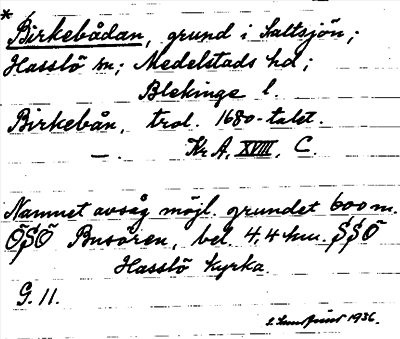 * Birkebådan, grund i Saltsjön;
Hasslö sn; Medelstads hd;
Blekinge l.
Birkebån, trol. 1680-talet.
—. Kr A, XVIII, C.
Namnet avsåg möjl. grundet 600 m.
ÖSÖ Busören, bel. 4,4 km. SSÖ
Hasslö kyrka.
G. 11.
1936.